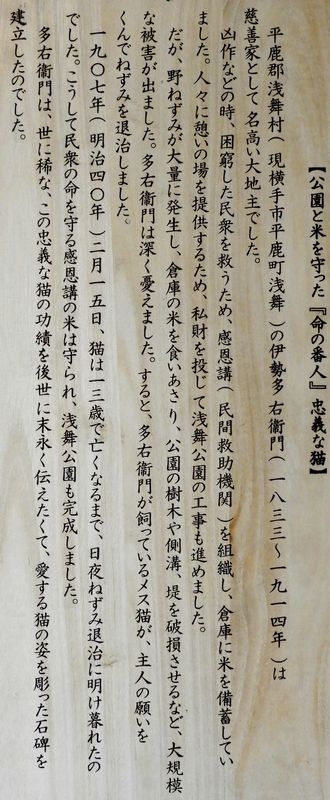 【公園と米を守った『命の番人』忠義な猫】
平鹿郡浅舞村(現横手市平鹿町浅舞)の伊勢多右衛門(一八三三~一九一四年)は
慈善家として名高い大地主でした。
凶作などの時、困窮した民衆を救うため、感恩講(民間救助機関)を組織し、倉庫に米を備蓄してい
ました。人々に憩いの場を提供するため、私財を投じて浅舞公園の工事も進めました。
だが、野ねずみが大量に発生し、倉庫の米を食いあさり、公園の樹木や側溝、堤を破損させるなど、大規模
な被害が出ました。多右衛門は深く憂えました。すると、多右衛門が飼っているメス猫が、主人の願いを
くんでねずみを退治しました。
一九〇七年(明治四〇年)二月一五日、猫は一三歳で亡くなるまで、日夜ねずみ退治に明け暮れたの
でした。こうして民衆の命を守る感恩講の米は守られ、浅舞公園も完成しました。
多右衛門は、世に稀な、この忠義な猫の功績を後世に末永く伝えたくて、愛する猫の姿を彫った石碑を
建立したのでした。